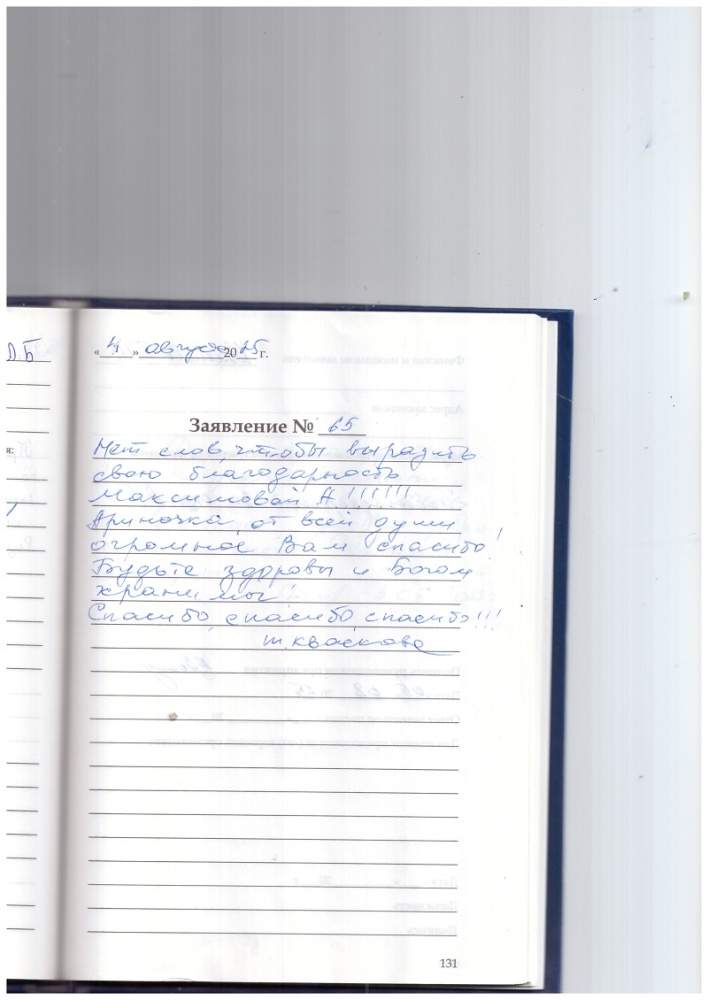 ДБ
« 4 » августа 2025 г.
Заявление № 65
Нет слов, чтобы выразить
свою благодарность
Максимовой А!!!!!!!
Ариночка, от всей души
огромное Вам спасибо!
Будьте здоровы и Богом
хранимы!
Спасибо, спасибо, спасибо!!!
т. Кваскова
131